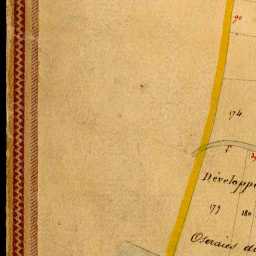 90
174
Développ
179 180
Oseraies d